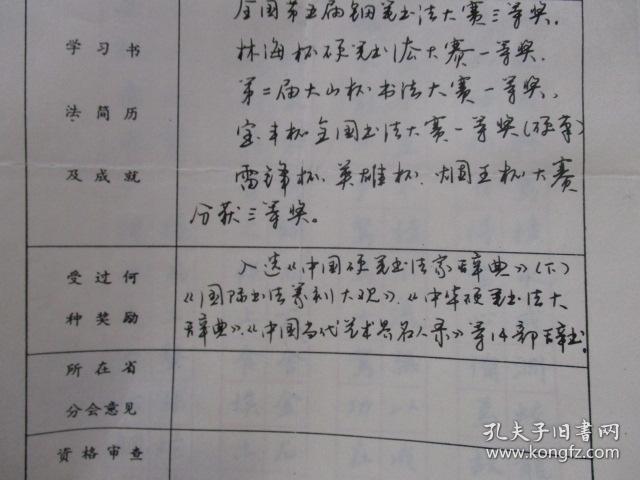 全国第五届钢笔书法大赛三等奖.
学习书
林海杯硬笔书法大赛一等奖.
第二届大山杯书法大赛一等奖,
法简历
宝丰杯全国书法大赛一等奖
及成就
雷锋杯、英雄杯、烟王杯大赛
分获三等奖。
受过何
入选《中国硬笔书法家辞典》(下)
《国际书法篆刻大观》、《中华硬笔书法大
种奖励
辞典》、《中国当代艺术界名人录》等14部辞书.
所在省
分会意见
资格审查
孔夫子旧书网
www.kongfz.com